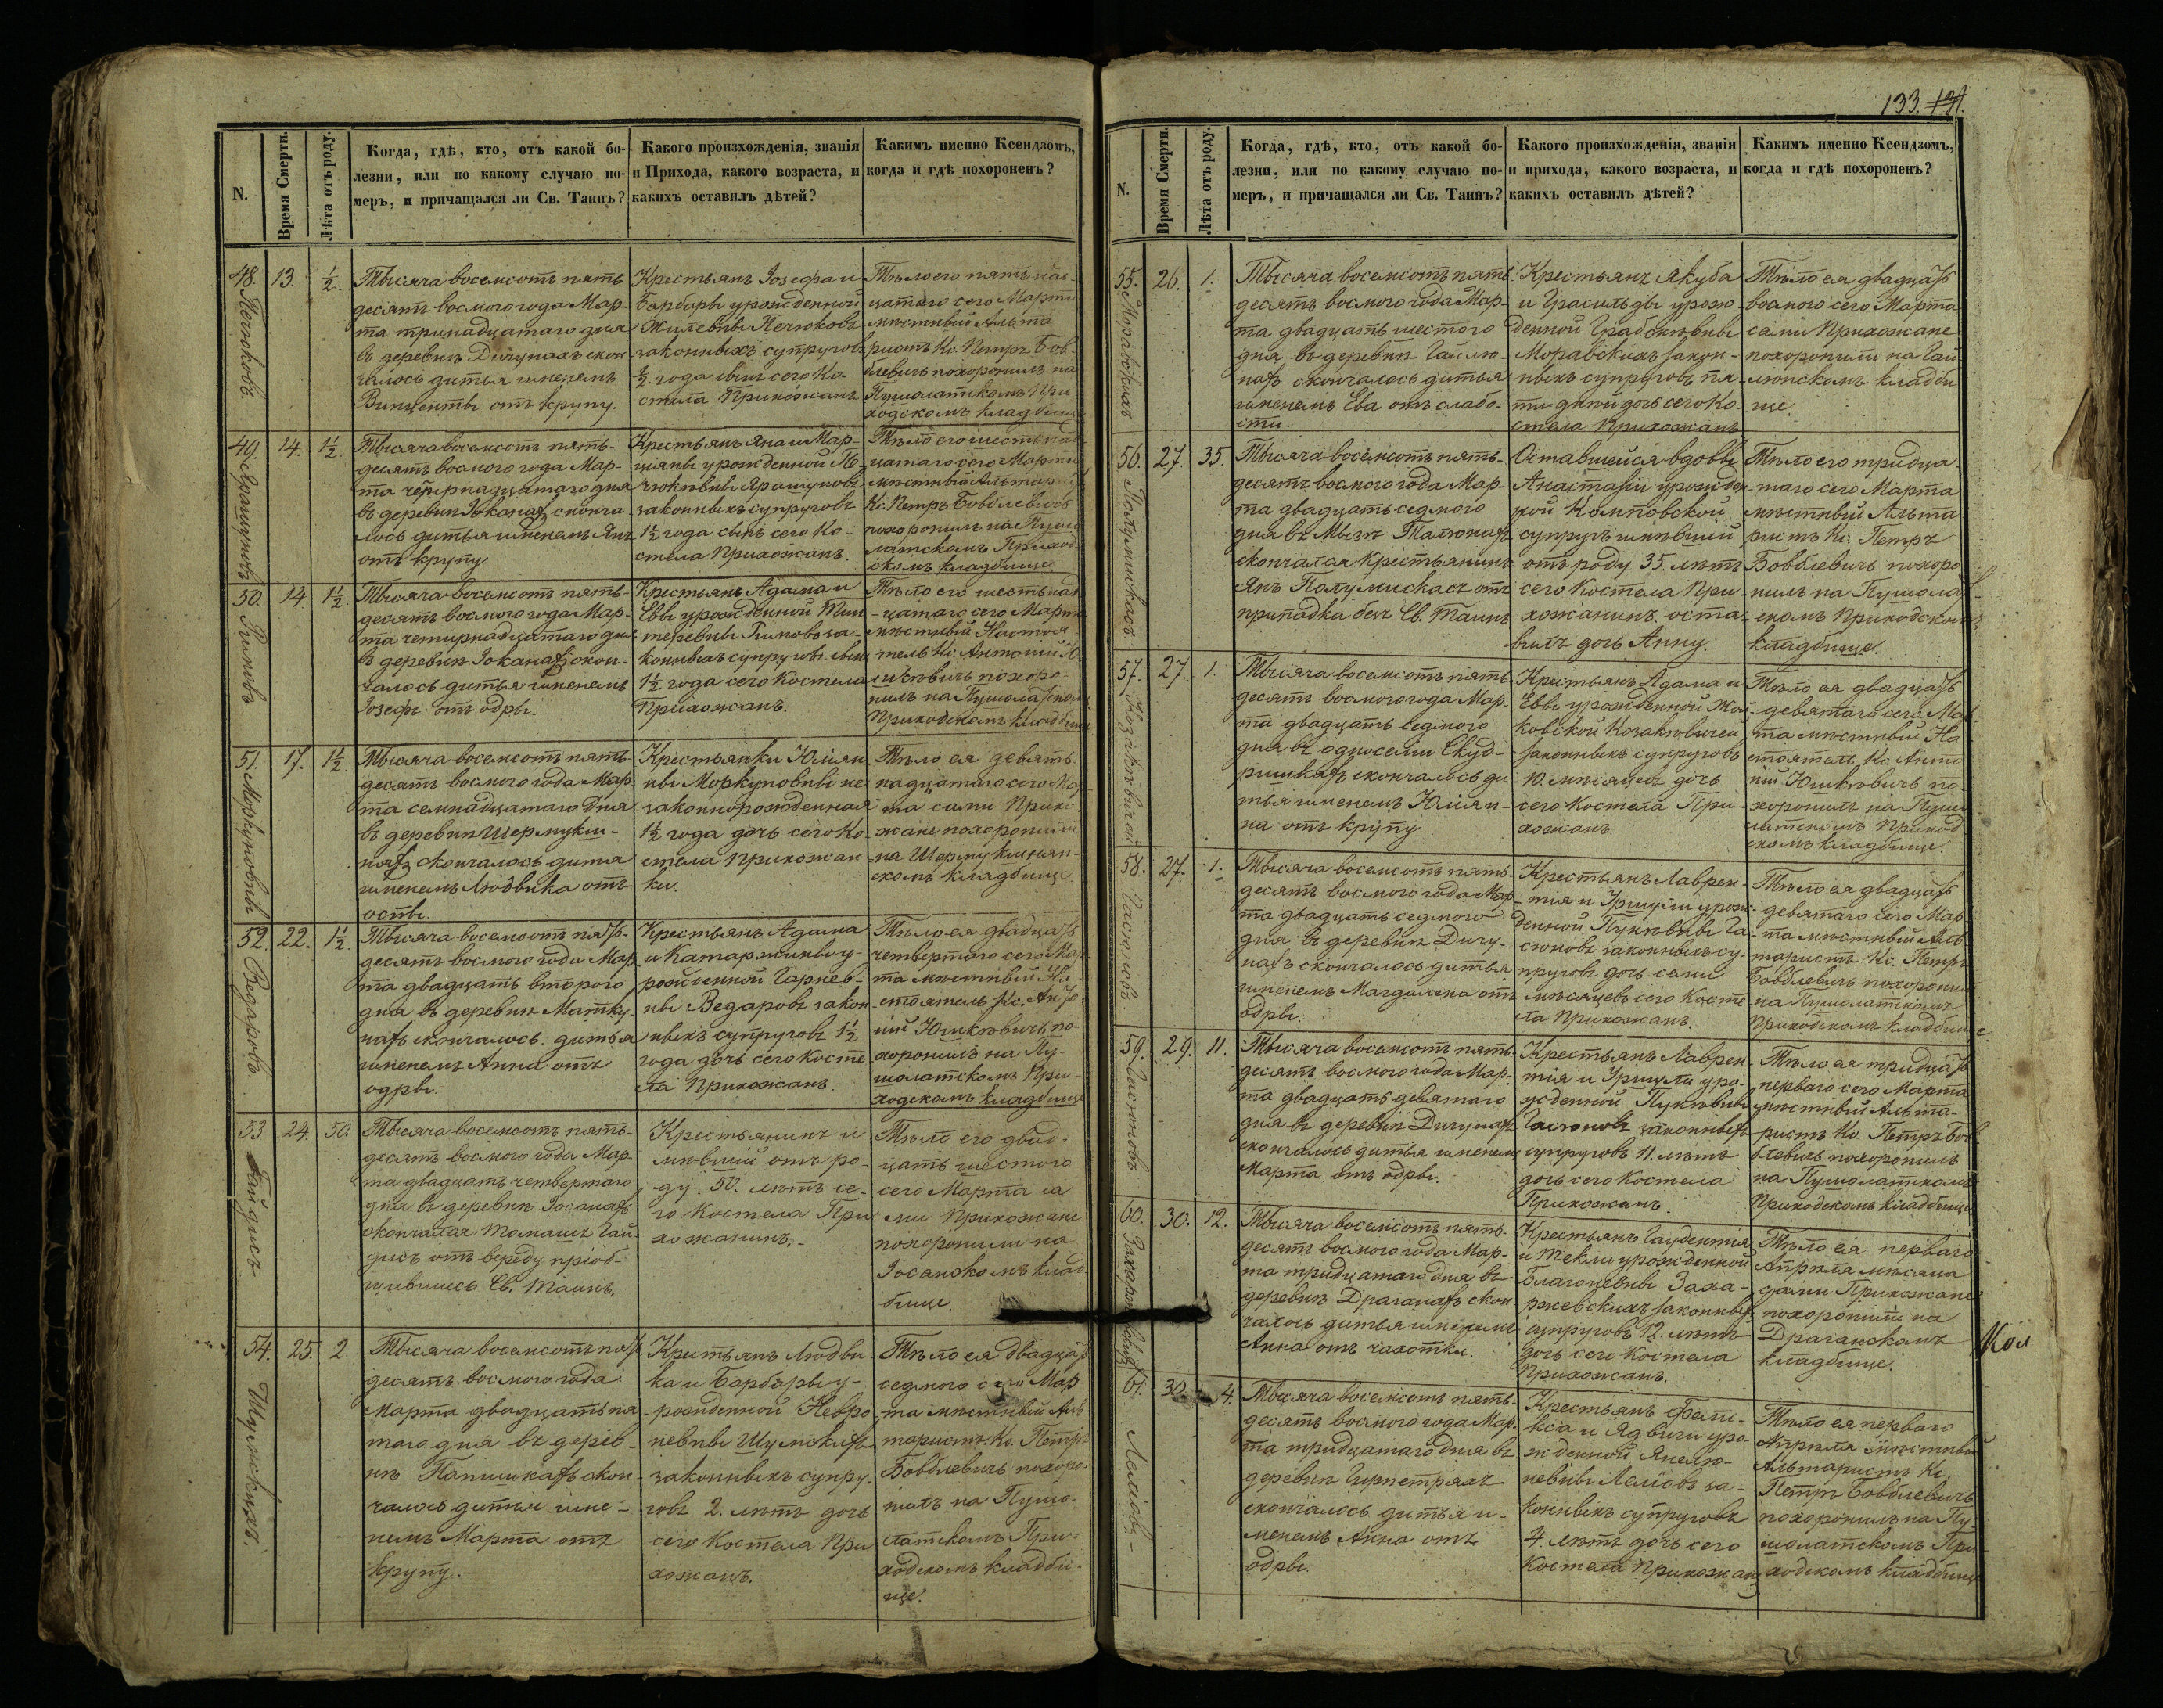 133. 131.
N.
Время Смерти.
Лѣта отъ роду.
Когда, гдѣ, кто, отъ какой бо-
лезни, или по какому случаю по-
меръ, и причащался ли Св. Таинъ?
Какого произхожденія, званія
и Прихода, какого возраста, и
какихъ оставилъ дѣтей?
Какимъ именно Ксендзомъ,
когда и гдѣ похороненъ?
48. 13. ½.
Тысяча восемсотъ пять
десятъ восмого года Мар-
та тринадцатаго дня
въ деревнѣ Дичунахъ скон
чалось дитья именемъ
Винценты отъ крупу.
Крестьянъ Іозефа и
Барбары урожденной
законныхъ супруговъ
½ года сынъ сего Ко-
стела Прихожанъ
Тѣло его пятьнад
цатаго сего Марта
мѣстный Альта
ристъ Кс. Петръ Бов
блевичъ похоронилъ на
Пушолатскомъ При
ходскомъ кладбище
49. 14. 1½.
Тысяча восемсотъ пять-
десятъ восмого года Мар-
та четырнадцатаго дня
въ деревнѣ Іоканахъ сконча
лось дитья именемъ Янъ
отъ крупу.
Крестьянъ Яна и Мар-
цианы урожденной Пе
чюкѣвны Ярашуновъ
законныхъ супруговъ
1½ года сынъ сего Ко-
стела Прихожанъ.
Тѣло его шестьнад
цатаго сего Марта
мѣстный Альтарист
Кс. Петръ Бовблевичъ
похоронилъ на Пушо
латскомъ Приход
скомъ кладбище
50. 14. 1½.
Римовъ
Тысяча восемсотъ пять-
десятъ восмого года Мар-
та четырнадцатаго дня
въ деревнѣ Іоканахъ скон-
чалось дитья именемъ
Іозефъ отъ одры.
Крестьянъ Адама и
Евы урожденной
Римовъ за-
конныхъ супруговъ сынъ
1½ года сего Костела
Прихожанъ.
Тѣло его шестьнад
-цатаго сего Марта
мѣстный Настоя
тель Кс. Антоній Ю
шкѣвичъ похоро-
нилъ на Пушолатском
Приходскомъ кладбище
51. 17. 1½.
Моркуновны
Тысяча восемсотъ пять-
десятъ восмого года Мар-
та семнадцатаго дня
въ деревнѣ Шермукш-
няхъ скончалось дитя
именемъ Людвика отъ
оспы.
Крестьянки Юліян
ны Моркуновны не
законнорожденная
1½ года дочь сего Ко
стела прихожан
ки.
Тѣло ея девять-
надцатаго сего Мар
та сами Прихо-
жане похоронили
на Шермукшнян-
скомъ кладбище.
52. 22. 1½.
Ведаровъ
Тысяча восемсотъ пять-
десятъ восмого года Мар
та двадцать второго
дня въ деревнѣ Матку-
нахъ скончалось дитья
именемъ Анна отъ
одры.
Крестьянъ Адама
и Катаржины у-
рожденной Гарнев-
ны Ведаровъ закон
ныхъ супруговъ 1½
года дочь сего Косте
ла Прихожанъ.
Тѣло ея двадцать
четвертаго сего Мар
та мѣстный На
стоятель Кс. Анто
ній Юшкѣвичъ по-
хоронилъ на Пу-
шолатскомъ При-
ходскомъ кладбище
53. 24. 50.
Гайдисъ
Тысяча восемсотъ пять-
десятъ восмого года Мар
та двадцать четвертаго
дня въ деревнѣ Іосанахъ
скончался Томашъ Гай
дисъ отъ вереду пріоб-
щившись Св. Таинъ.
Крестьянинъ и
мѣвшій отъ ро-
ду 50. лѣтъ се-
го Костела При
хожанинъ.
Тѣло его двад-
цать шестого
сего Марта са
ми Прихожане
похоронили на
Іосанскомъ клад-
бище.
54. 25. 2.
Шумскихъ.
Тысяча восемсотъ пять
десятъ восмого года
Марта двадцать пя
таго дня въ дерев-
нѣ Папишкахъ скон
чалось дитья име-
немъ Марта отъ
крупу.
Крестьянъ Людви
ка и Барбары у-
рожденной Невро
невны Шумскихъ
законныхъ супру-
говъ 2. лѣтъ дочь
сего Костела При
хожанъ.
Тѣло ея двадцать
седмого сего Мар
та мѣстный Аль
таристъ Кс. Петръ
Бовблевичъ похоро-
нилъ на Пушо-
латскомъ При-
ходскомъ кладби-
ще.
N.
Время Смерти.
Лѣта отъ роду.
Когда, гдѣ, кто, отъ какой бо-
лезни, или по какому случаю по-
меръ, и причащался ли Св. Таинъ?
Какого произхожденія, званія
и прихода, какого возраста, и
какихъ оставилъ дѣтей?
Какимъ именно Ксендзомъ,
когда и гдѣ похороненъ?
55. 26. 1.
Моравскихъ
Тысяча восемсотъ пять
десятъ восмого года Мар-
та двадцать шестого
дня въ деревнѣ Гайлю-
нахъ скончалось дитья
именемъ Ева отъ слабо-
сти.
Крестьянъ Якуба
и Грасильды урож
денной Грабскѣвны
Моравскихъ закон-
ныхъ супруговъ пя
ти дней дочь сего Ко-
стела Прихожанъ
Тѣло ея двадцать
восмого сего Марта
сами Прихожане
похоронили на Гай
люнскомъ кладби
ще.
56. 27. 35.
Полумискасъ
Тысяча восемсотъ пять-
десятъ восмого года Мар-
та двадцать седмого
дня въ Мызѣ Талюнахъ
скончался Крестьянинъ
Янъ Полумискасъ отъ
припадка безъ Св. Таинъ
Оставшейся вдовы
Анастазіи урожден
ной Комповской
супругъ имѣвшій
отъ роду 35. лѣтъ
сего Костела При-
хожанинъ. оста-
вилъ дочь Анну.
Тѣло его тридца-
таго сего Марта
мѣстный Альта
ристъ Кс. Петръ
Бовблевичъ похоро
нилъ на Пушолат-
скомъ Приходском
кладбище.
57. 27. 1.
Козакѣвичей
Тысяча восемсотъ пять
десятъ восмого года Мар
та двадцать седмого
дня въ односели Скуд-
ришкахъ скончалось ди
тья именемъ Юліян-
на отъ крупу
Крестьянъ Адама и
Евы урожденной
ковской Козакѣвичей
законныхъ супруговъ
10. мѣсяцей дочь
сего Костела При
хожанъ.
Тѣло ея двадцать
девятаго сего Мар
та мѣстный На
стоятель Кс. Анто
ній Юшкѣвичъ по-
хоронилъ на Пушо
латскомъ Приход
скомъ кладбище
58. 27. 1.
Гасюновъ
Тысяча восемсотъ пять-
десятъ восмого года Мар
та двадцать седмого
дня въ деревнѣ Дичу-
нахъ скончалось дитья
именемъ Магдалена отъ
одры.
Крестьянъ Лаврен-
тія и Уршули урож-
денной Пукѣвны Га-
сюновъ законныхъ су-
пруговъ дочь семи
мѣсяцевъ сего Косте
ла Прихожанъ.
Тѣло ея двадцать
девятаго сего Мар-
та мѣстный Аль
таристъ Кс. Петръ
Бовблевичъ похоронил
на Пушолатскомъ
Приходскомъ кладбище
59. 29. 11.
Гасюновъ
Тысяча восемсотъ пять-
десятъ восмого года Мар-
та двадцать девятаго
дня въ деревнѣ Дичунахъ
скончалось дитья именемъ
Марта отъ одры.
Крестьянъ Лаврен
тія и Уршули уро-
жденной Пукѣвны
Гасюновъ законныхъ
супруговъ 11. лѣтъ
дочь сего Костела
Прихожанъ.
Тѣло ея тридцать
перваго сего Марта
мѣстный Альта-
ристъ Кс. Петръ Бов
блевичъ похоронилъ
на Пушолатскомъ
Приходскомъ кладбище
60. 30. 12.
Тысяча восемсотъ пять-
десятъ восмого года Мар-
та тридцатаго дня въ
деревнѣ Драганахъ скон
чалось дитья именемъ
Анна отъ чахотки.
Крестьянъ Гаудентія
и Текли урожденной
Заха-
ржевскихъ законныхъ
супруговъ 12. лѣтъ
дочь сего Костела
Прихожанъ.
Тѣло ея перваго
Апрѣля мѣсяца
сами Прихожане
похоронили на
Драганскомъ
кладбище.
61. 30. 4.
Тысяча восемсотъ пять-
десятъ восмого года Мар-
та тридцатаго дня въ
деревнѣ
скончалось дитья и-
менемъ Анна отъ
одры.
Крестьянъ Фели-
кса и Ядвиги уро-
жденной Янелю-
невны за-
конныхъ супруговъ
4. лѣтъ дочь сего
Костела Прихожанъ
Тѣло ея перваго
Апрѣля мѣстный
Альтаристъ Кс.
Петръ Бовблевичъ
похоронилъ на Пу-
шолатскомъ При
ходскомъ кладбище